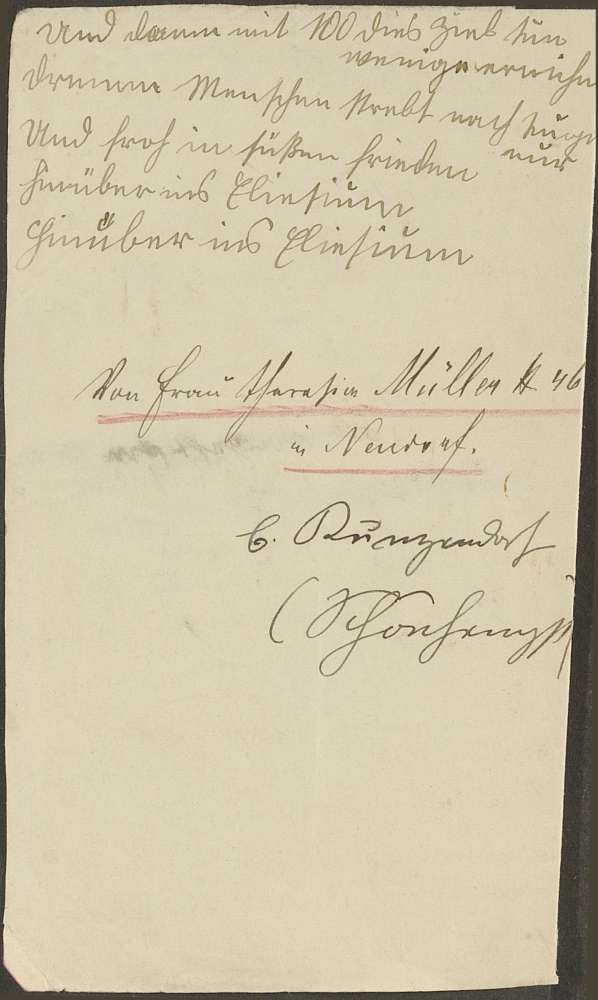 Und dann mit 100 dies Ziel tun
wenige erreichn
drumm Menschen strebt nach tugn
nur
Und froh in süßen frieden
hinüber ins Eliesium
hinüber ins Eliesium
Von Frau Theresia Müller N 46
in Neudorf.
b. Runzendorf
(Schönhengst)